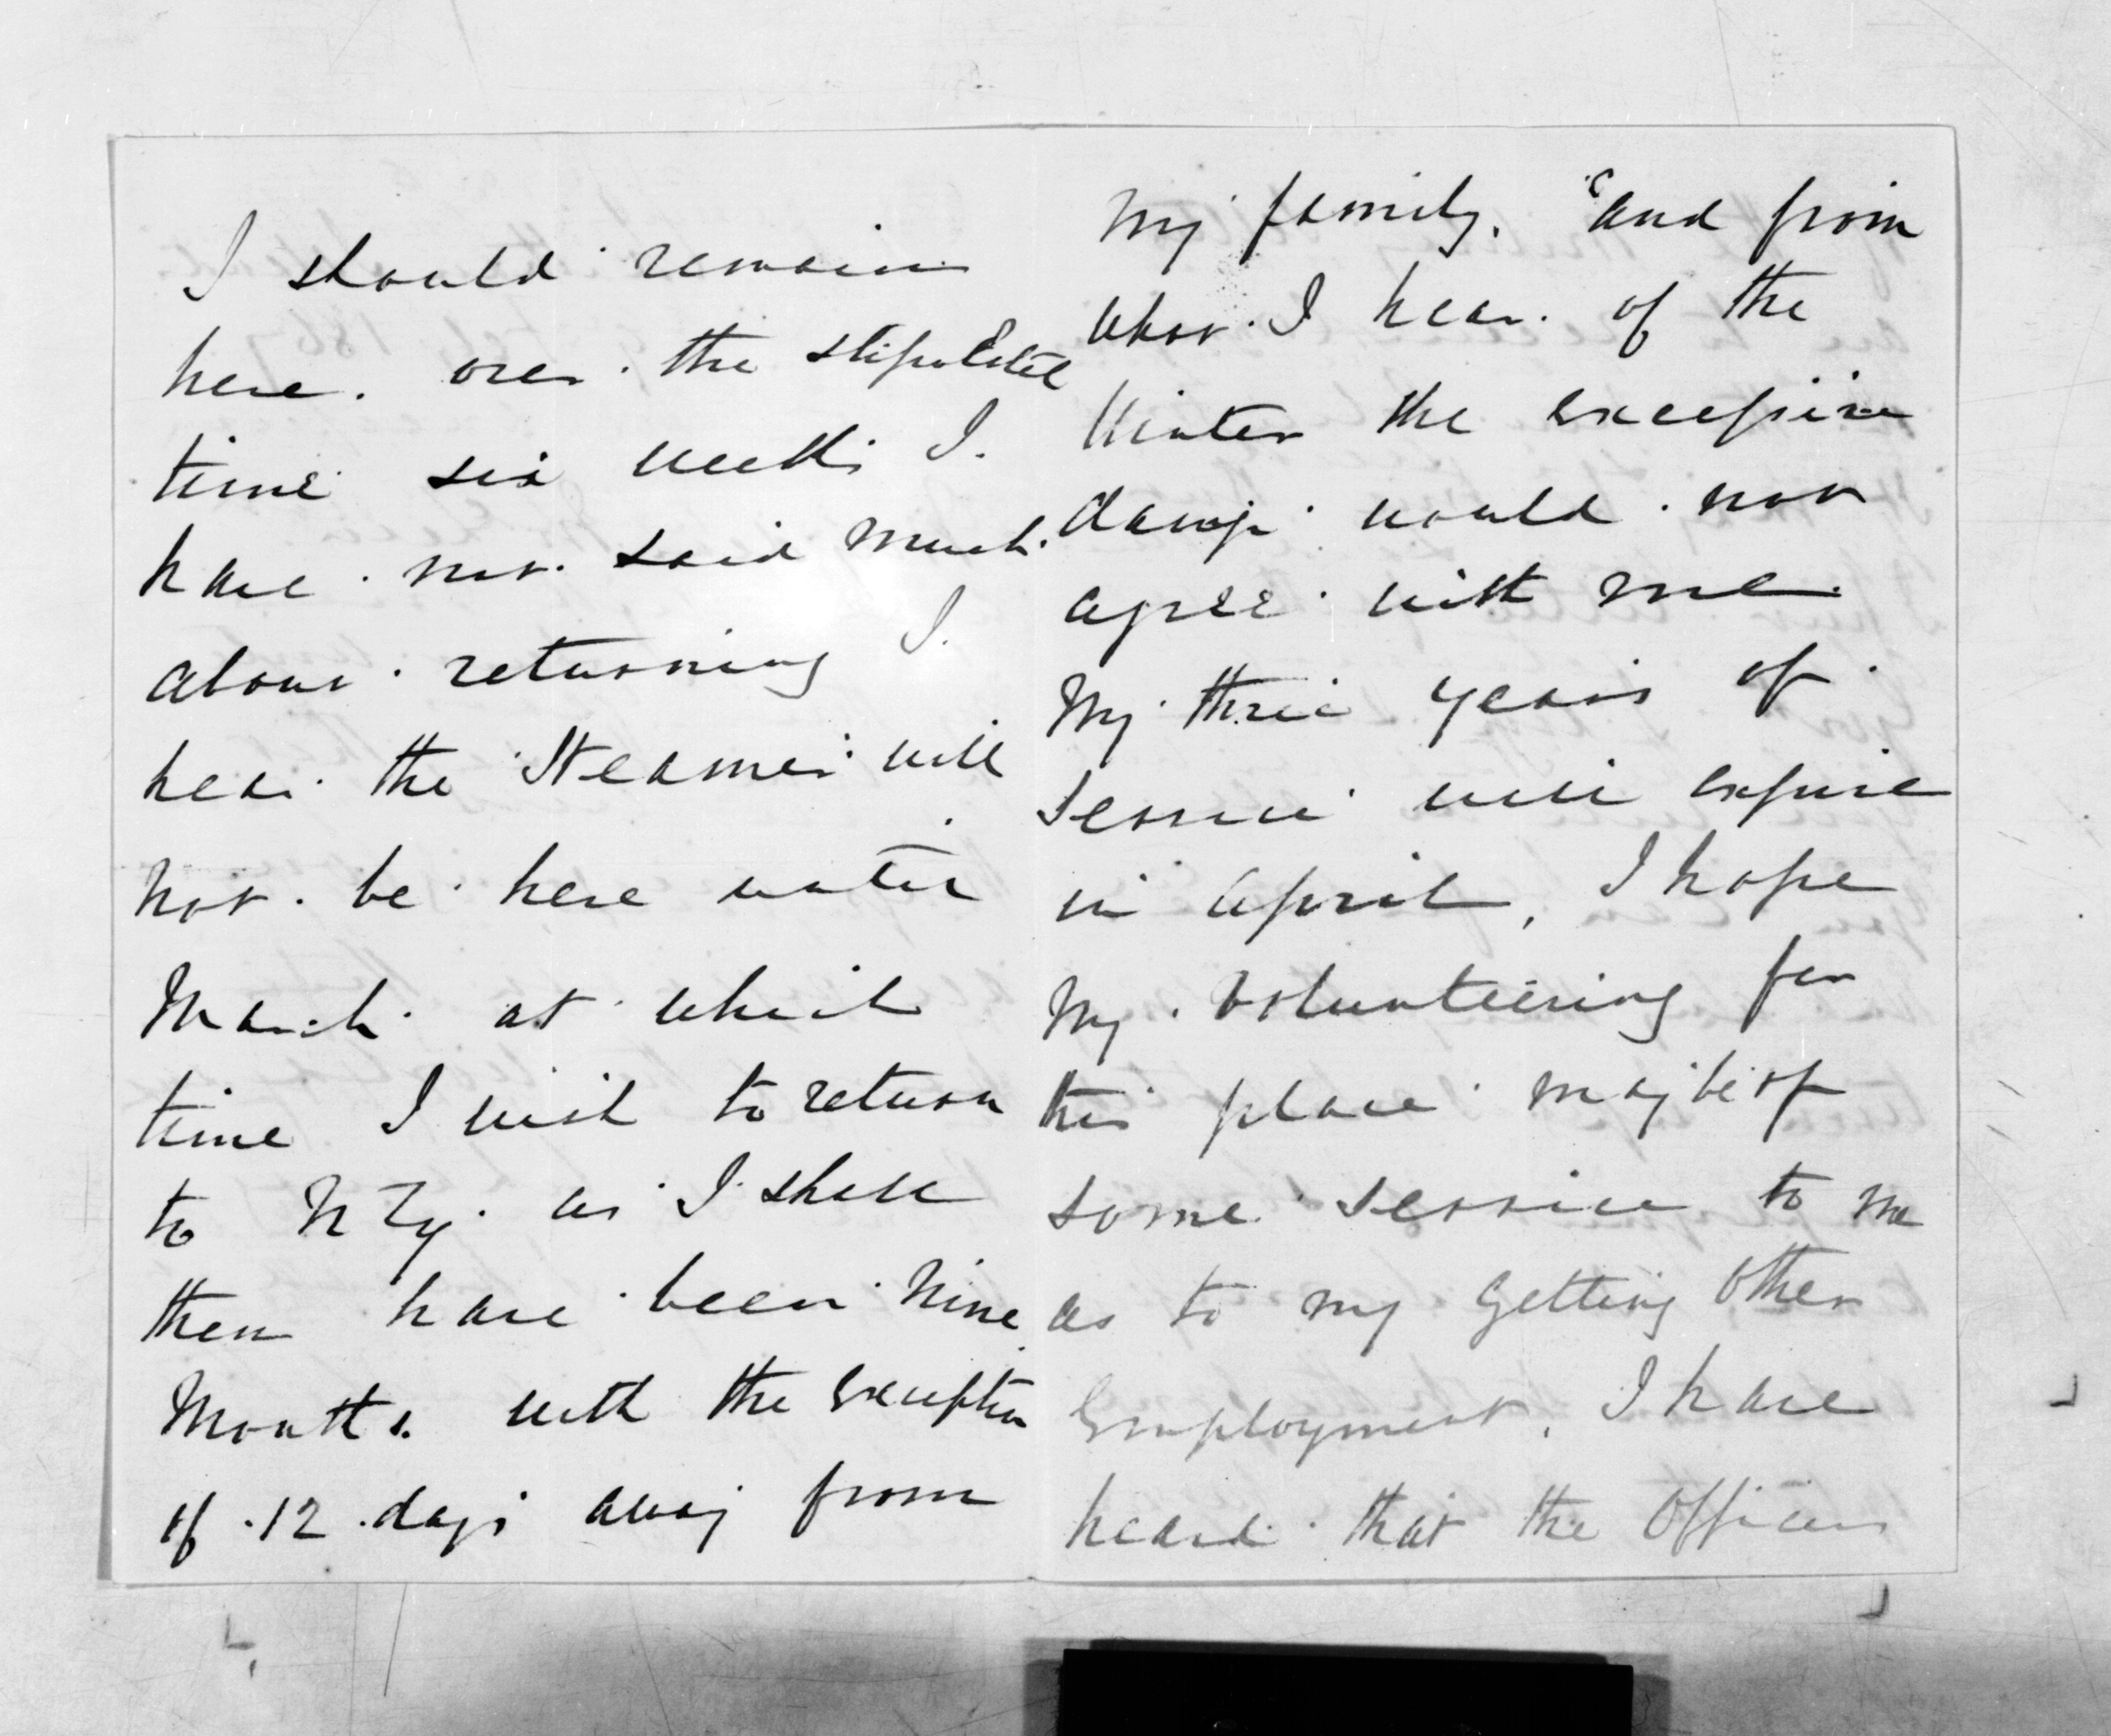 I should remain
here. over the stipulated
time six weeks I.
have not said much.
about returning I.
hear the Steamer will
not be here until
March at which
time I wish to return
to N Zy. as I shall
then have been Nine
Months. with the exception
of 12 days away from
My family. and from
what I hear of the
Winter the excessive
damp would not
agree with me.
My three years of
Service will expire
in April, I hope
My Volunteering for
this place may be of
some service to me
as to my getting other
Employment. I have
heard that the Officers